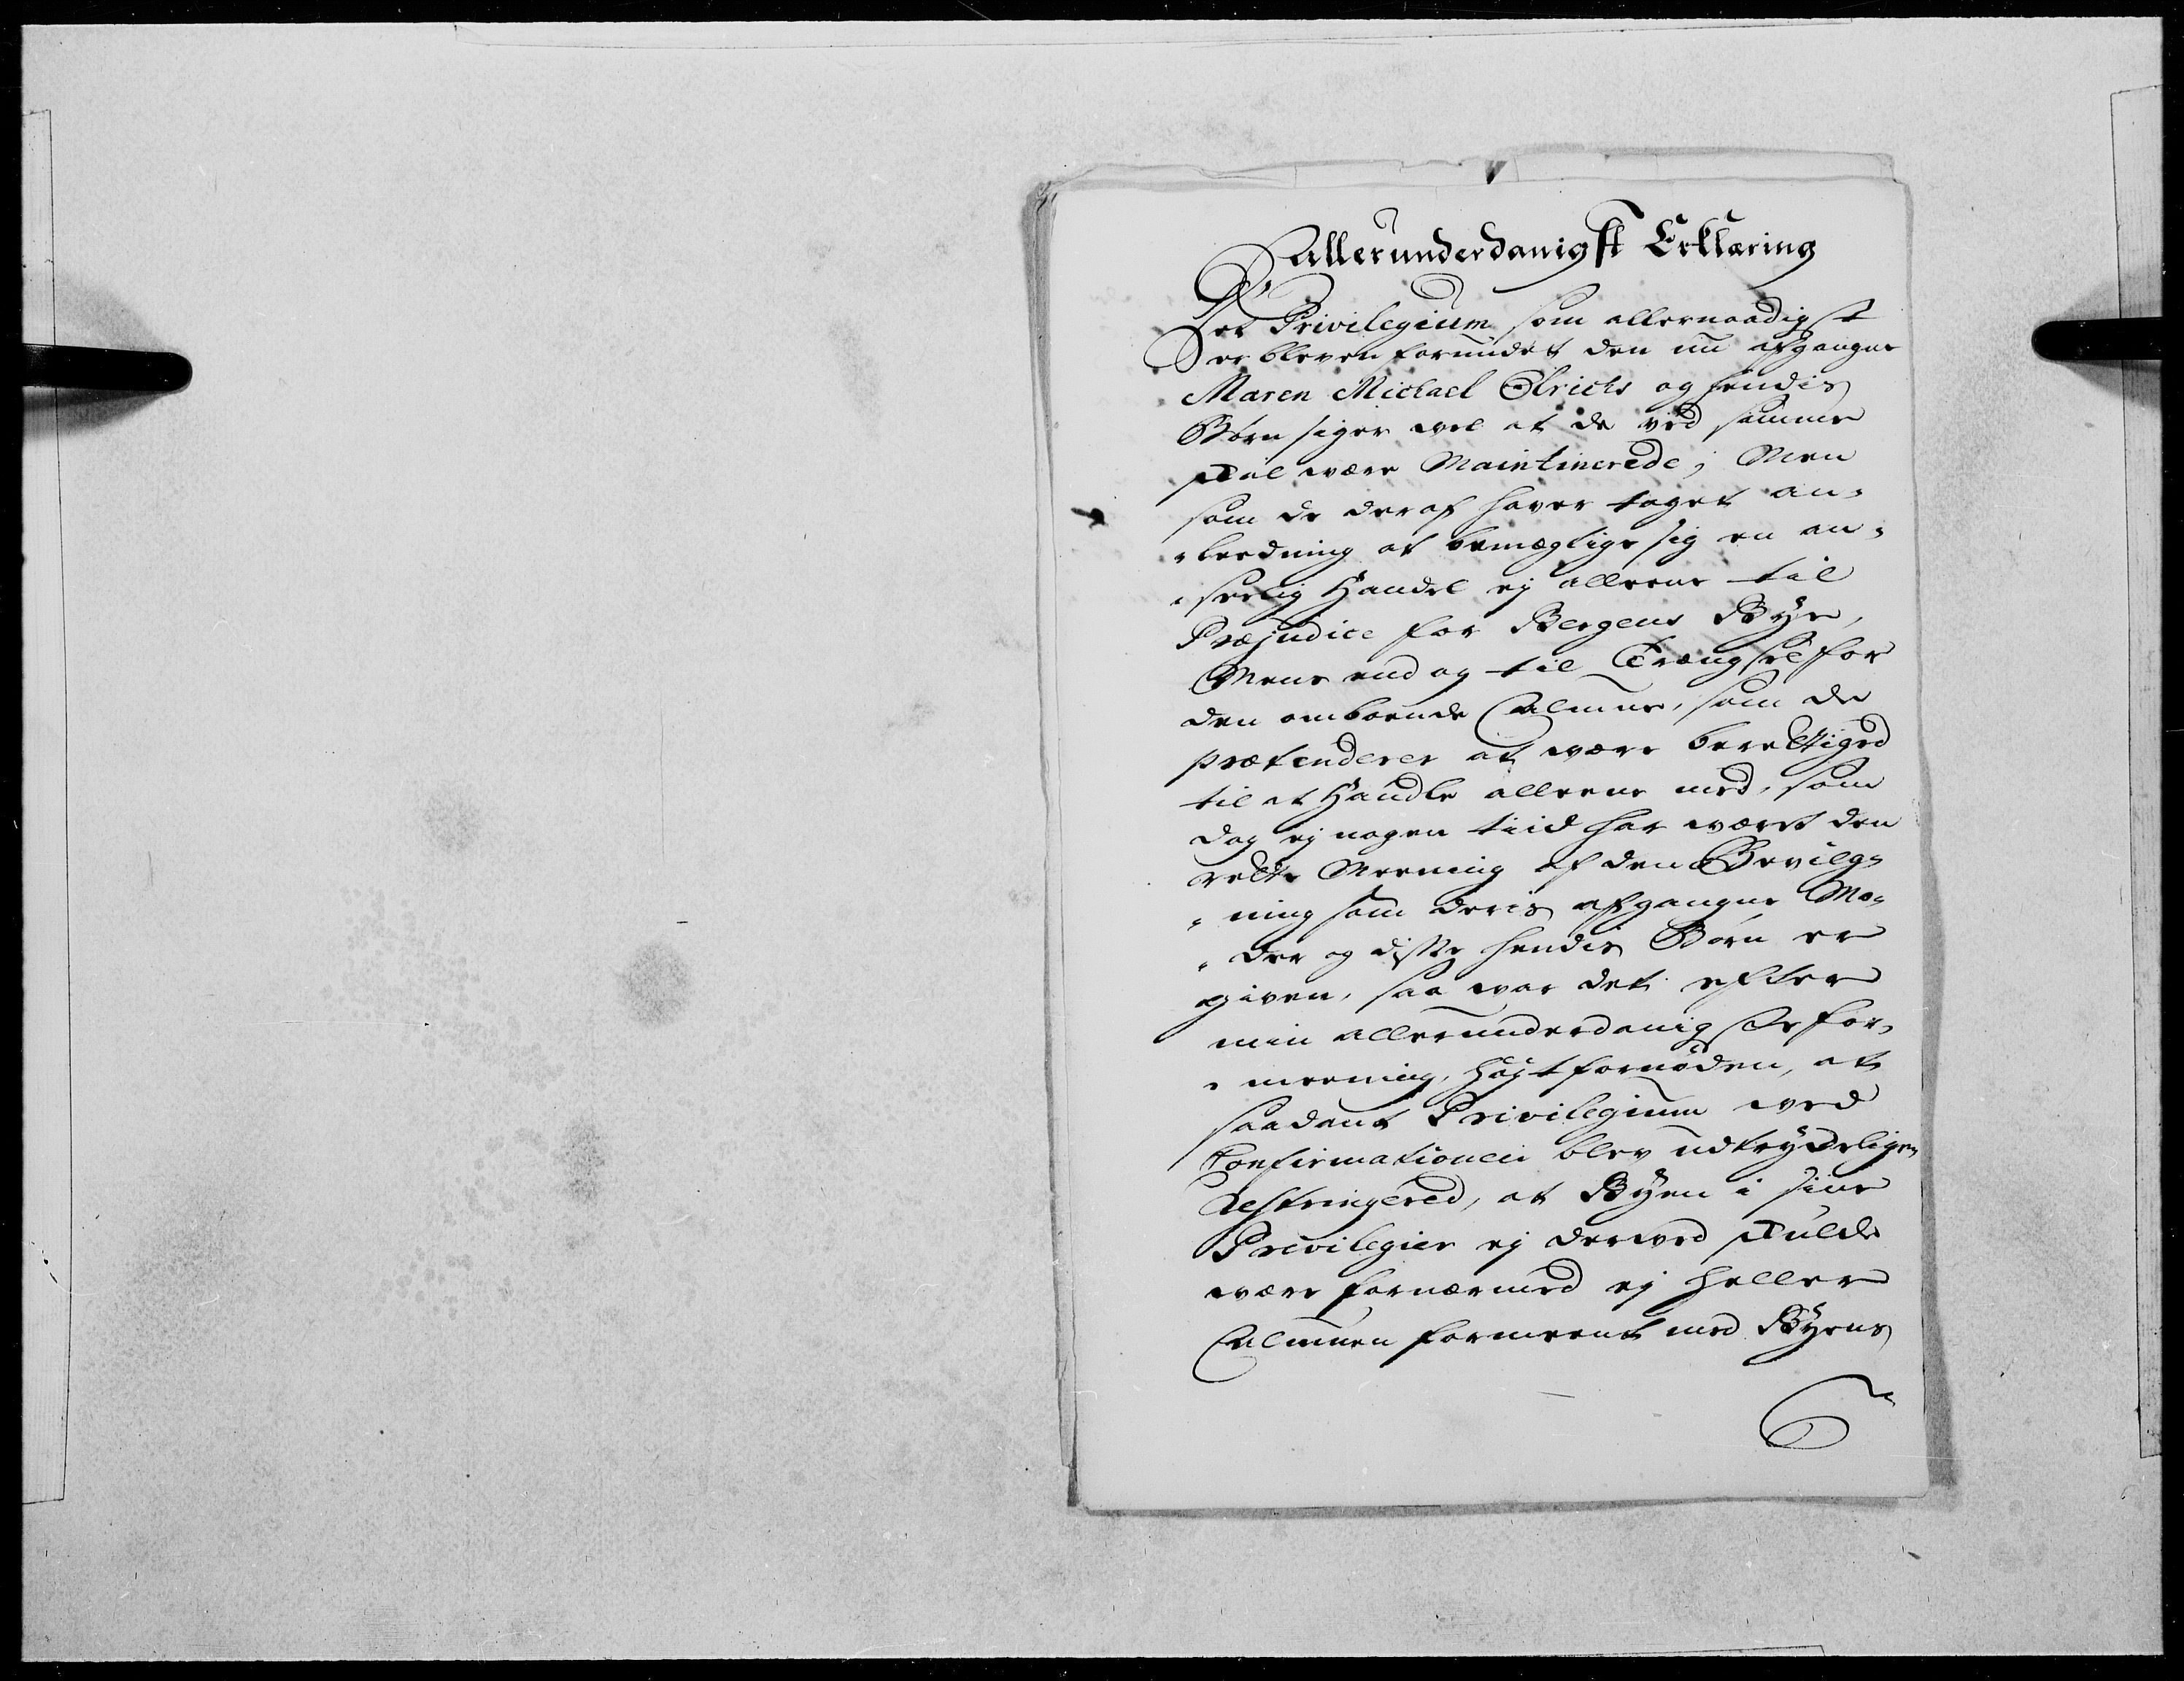 Allerunderdanigst Erklæring
Det Privilegium som allernaadigst
er bleven forundet den nu afgangne
Maren Michael Olrichs og hendis
Børn siger vel at de ved samme
skal være Maintinerede; Men
som de deraf haver taget an-
-leedning at bemægtige sig en an-
-seelig Handel ej alleene til
Præjudice for Bergens Bye,
Mens end og til Trængsel for
den omboende Almue, som de
prætenderer at være berettiged
til at Handle alleene med, som
dog ej nogen tiid har været den
rette Meening af den Bevilg-
-ning som deris afgangne Mo-
-der og disse hendis Børn er
given, saa var det efter
min allerunderdanigste for-
-meening, høyt fornøden, at
saadant Privilegium ved
Confirmationen blev udtrykkeligen
Restringered, at Byen i sine
Privilegier ej derved skulde
være fornærmed ej heller
Almuen formeent med Byens